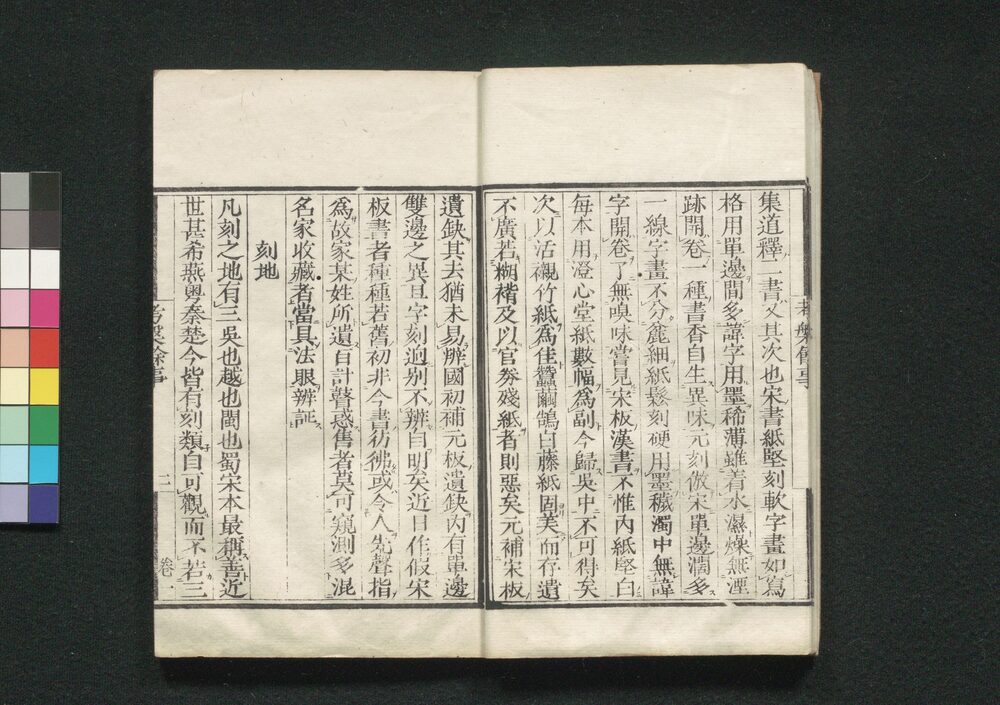 集道釋二書又其次也宋書紙堅刻軟字畫如寫
格用單邊間多諱字用墨稀薄雖着水濕燥無湮
跡開卷一種書香自生異味元刻倣宋單邊濶多
一線字畫不分麄細紙鬆刻硬用墨穢濁中無諱
字開卷了無嗅味嘗見宋板漢書不惟內紙堅白
每本用澄心堂紙數幅爲副今歸吳中不可得矣
次以活襯竹紙爲佳蠶繭鵠白藤紙固美而存遺
不廣若糊褙及以官劵殘紙者則惡矣元補宋板
遺缺其去猶未易辨國初補元板遺缺內有單邊
雙邊之異且字刻逈別不辨自明矣近日作假宋
板書者種種若舊初非今書彷彿或令人先聲指
爲故家某姓所遺百計瞽惑售者莫可窺測多混
名家收藏者當具法眼辨証
刻地
凡刻之地有三吳也越也閩也蜀宋本最稱善近
世甚希燕粤秦楚今皆有刻類自可觀而不若三
考槃餘事 三 卷一